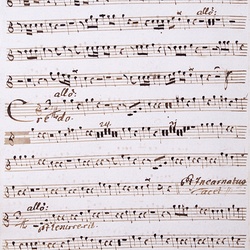 allo:
allo:
Credo.
24.
Et Incarnatus
tacet
allo:
Et resurrexit